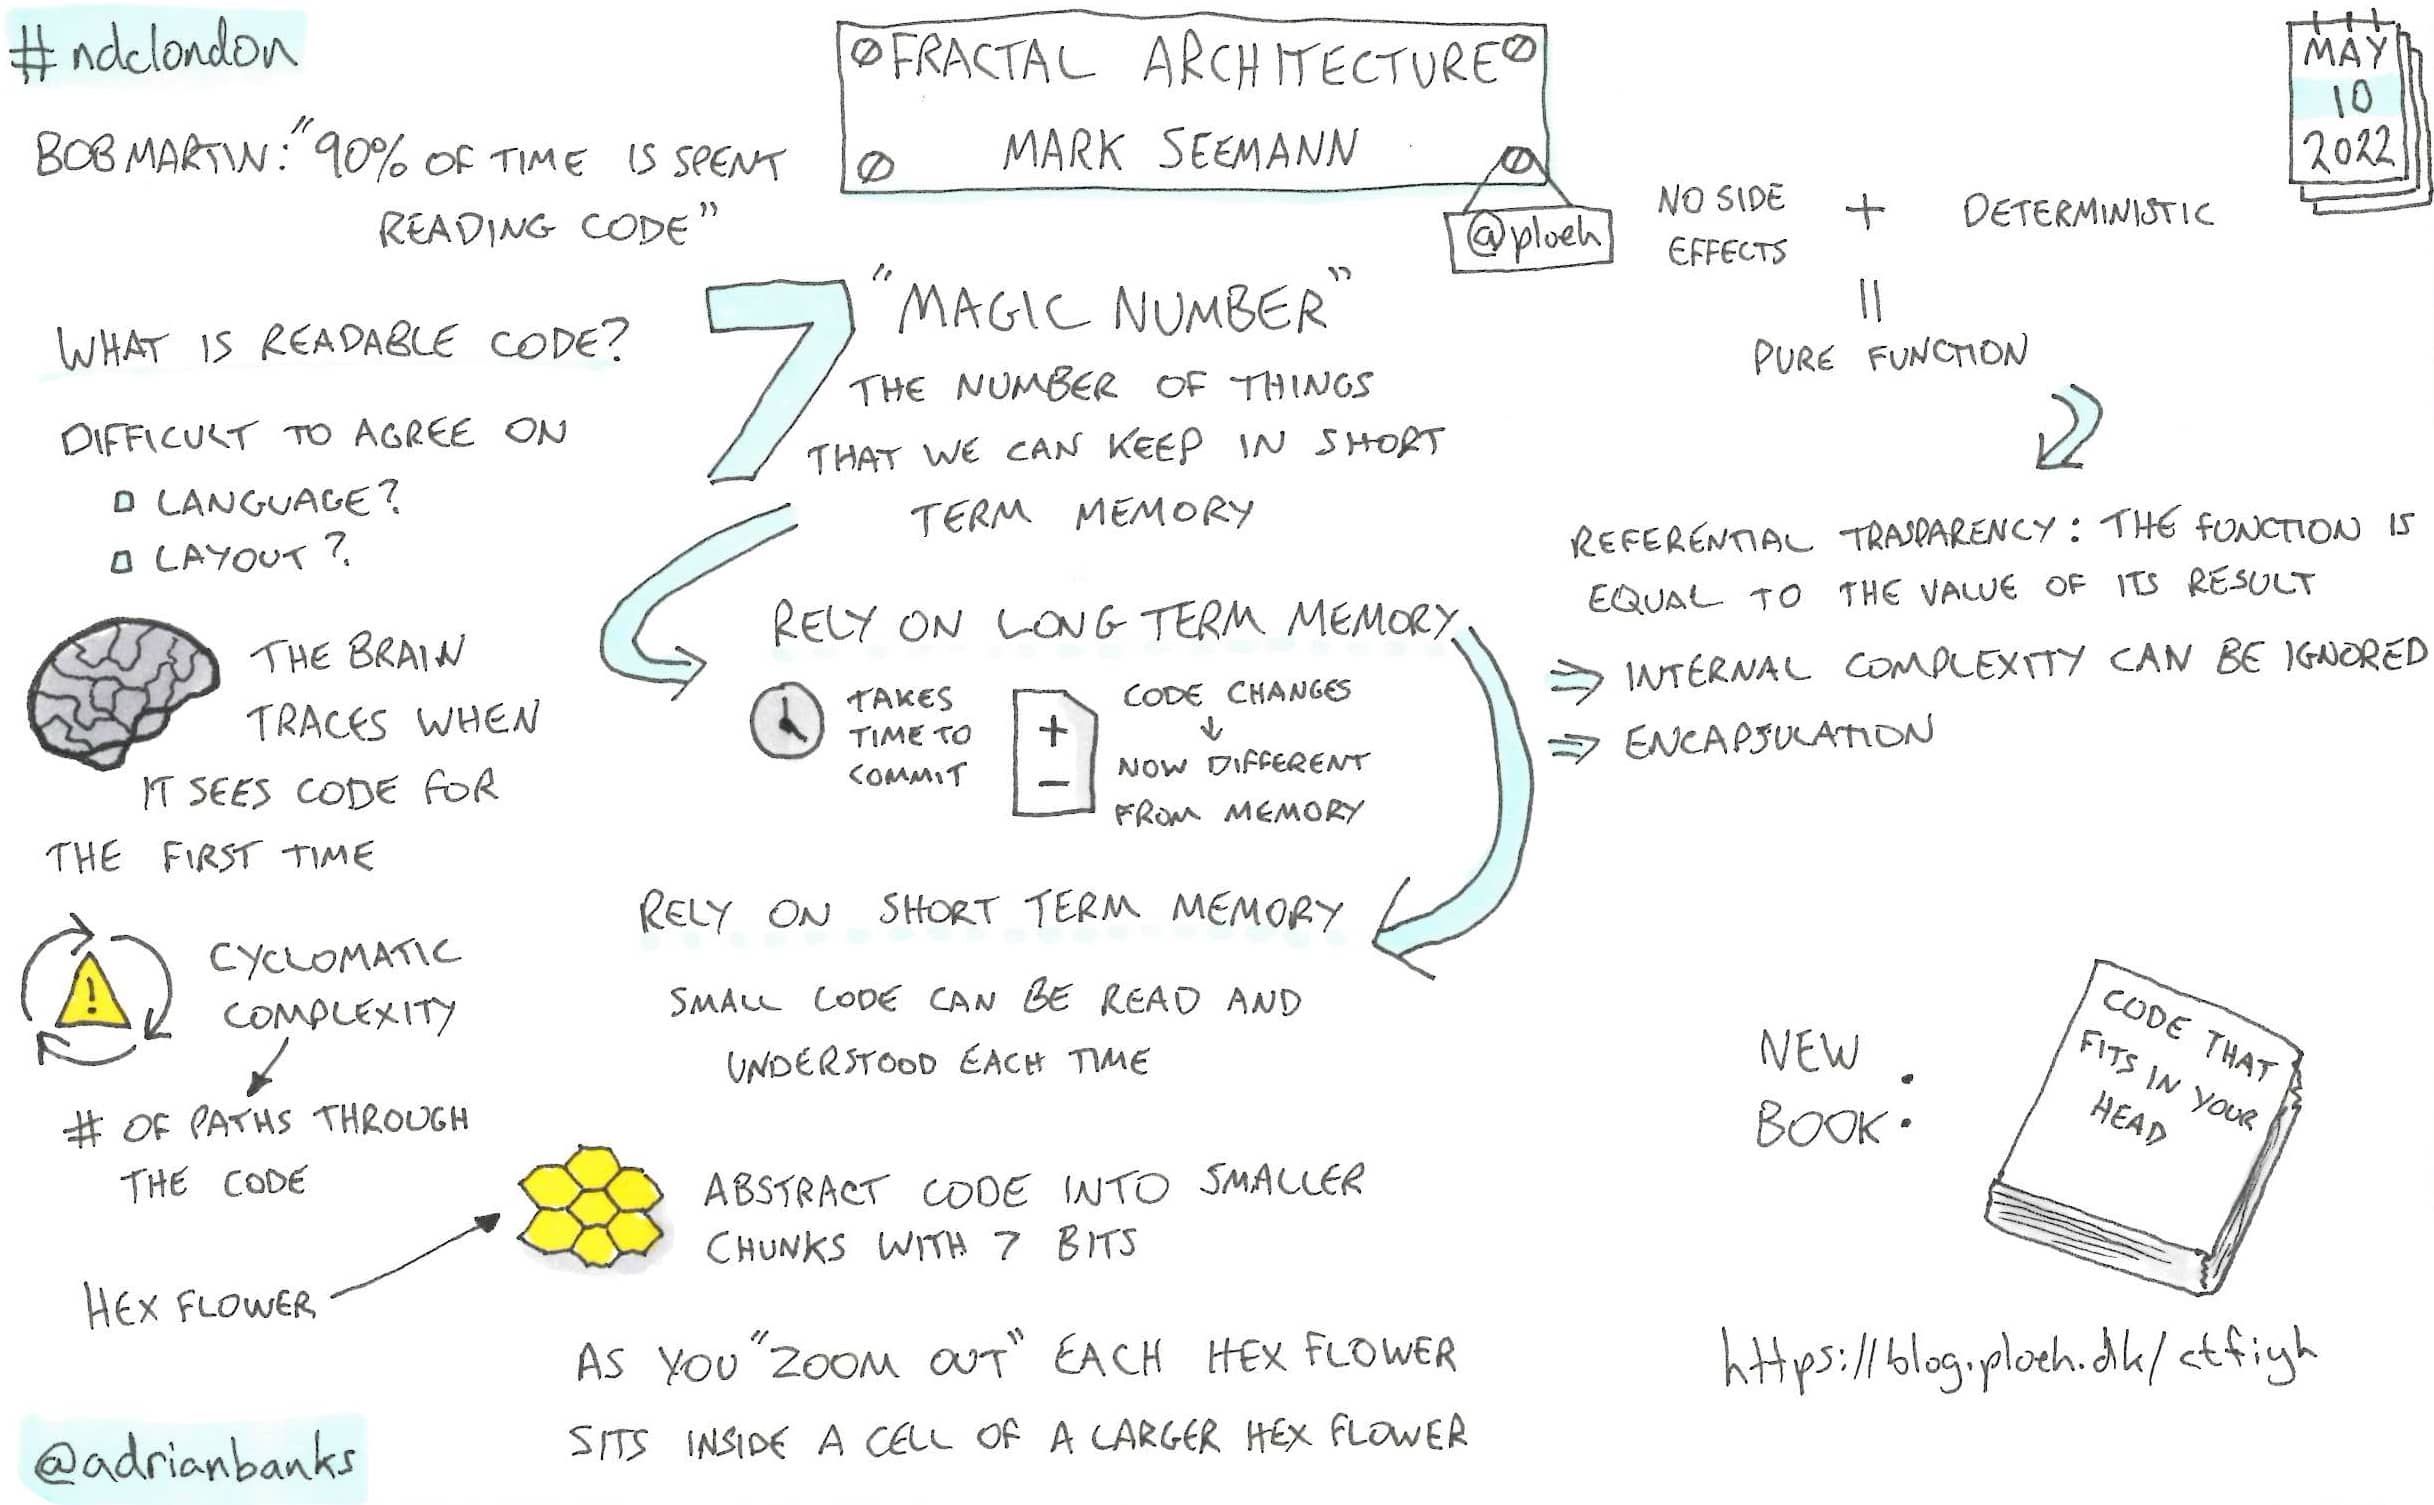 #ndclondon
FRACTAL ARCHITECTURE
MARK SEEMANN
@ploeh
MAY
10
2022
BOB MARTIN: "90% OF TIME IS SPENT
READING CODE"
WHAT IS READABLE CODE?
DIFFICULT TO AGREE ON
LANGUAGE?
LAYOUT?
THE BRAIN
TRACES WHEN
IT SEES CODE FOR
THE FIRST TIME
CYCLOMATIC
COMPLEXITY
# OF PATHS THROUGH
THE CODE
HEX FLOWER
7
"MAGIC NUMBER"
THE NUMBER OF THINGS
THAT WE CAN KEEP IN SHORT
TERM MEMORY
RELY ON LONG TERM MEMORY
TAKES
TIME TO
COMMIT
+
-
CODE CHANGES
NOW DIFFERENT
FROM MEMORY
RELY ON SHORT TERM MEMORY
SMALL CODE CAN BE READ AND
UNDERSTOOD EACH TIME
ABSTRACT CODE INTO SMALLER
CHUNKS WITH 7 BITS
AS YOU "ZOOM OUT" EACH HEX FLOWER
SITS INSIDE A CELL OF A LARGER HEX FLOWER
NO SIDE
EFFECTS
+
DETERMINISTIC
=
PURE FUNCTION
REFERENTIAL TRASPARENCY: THE FUNCTION IS
EQUAL TO THE VALUE OF ITS RESULT
⇒ INTERNAL COMPLEXITY CAN BE IGNORED
⇒ ENCAPSULATION
NEW
BOOK:
CODE THAT
FITS IN YOUR
HEAD
https://blog.ploeh.dk/ctfiyh
@adrianbanks